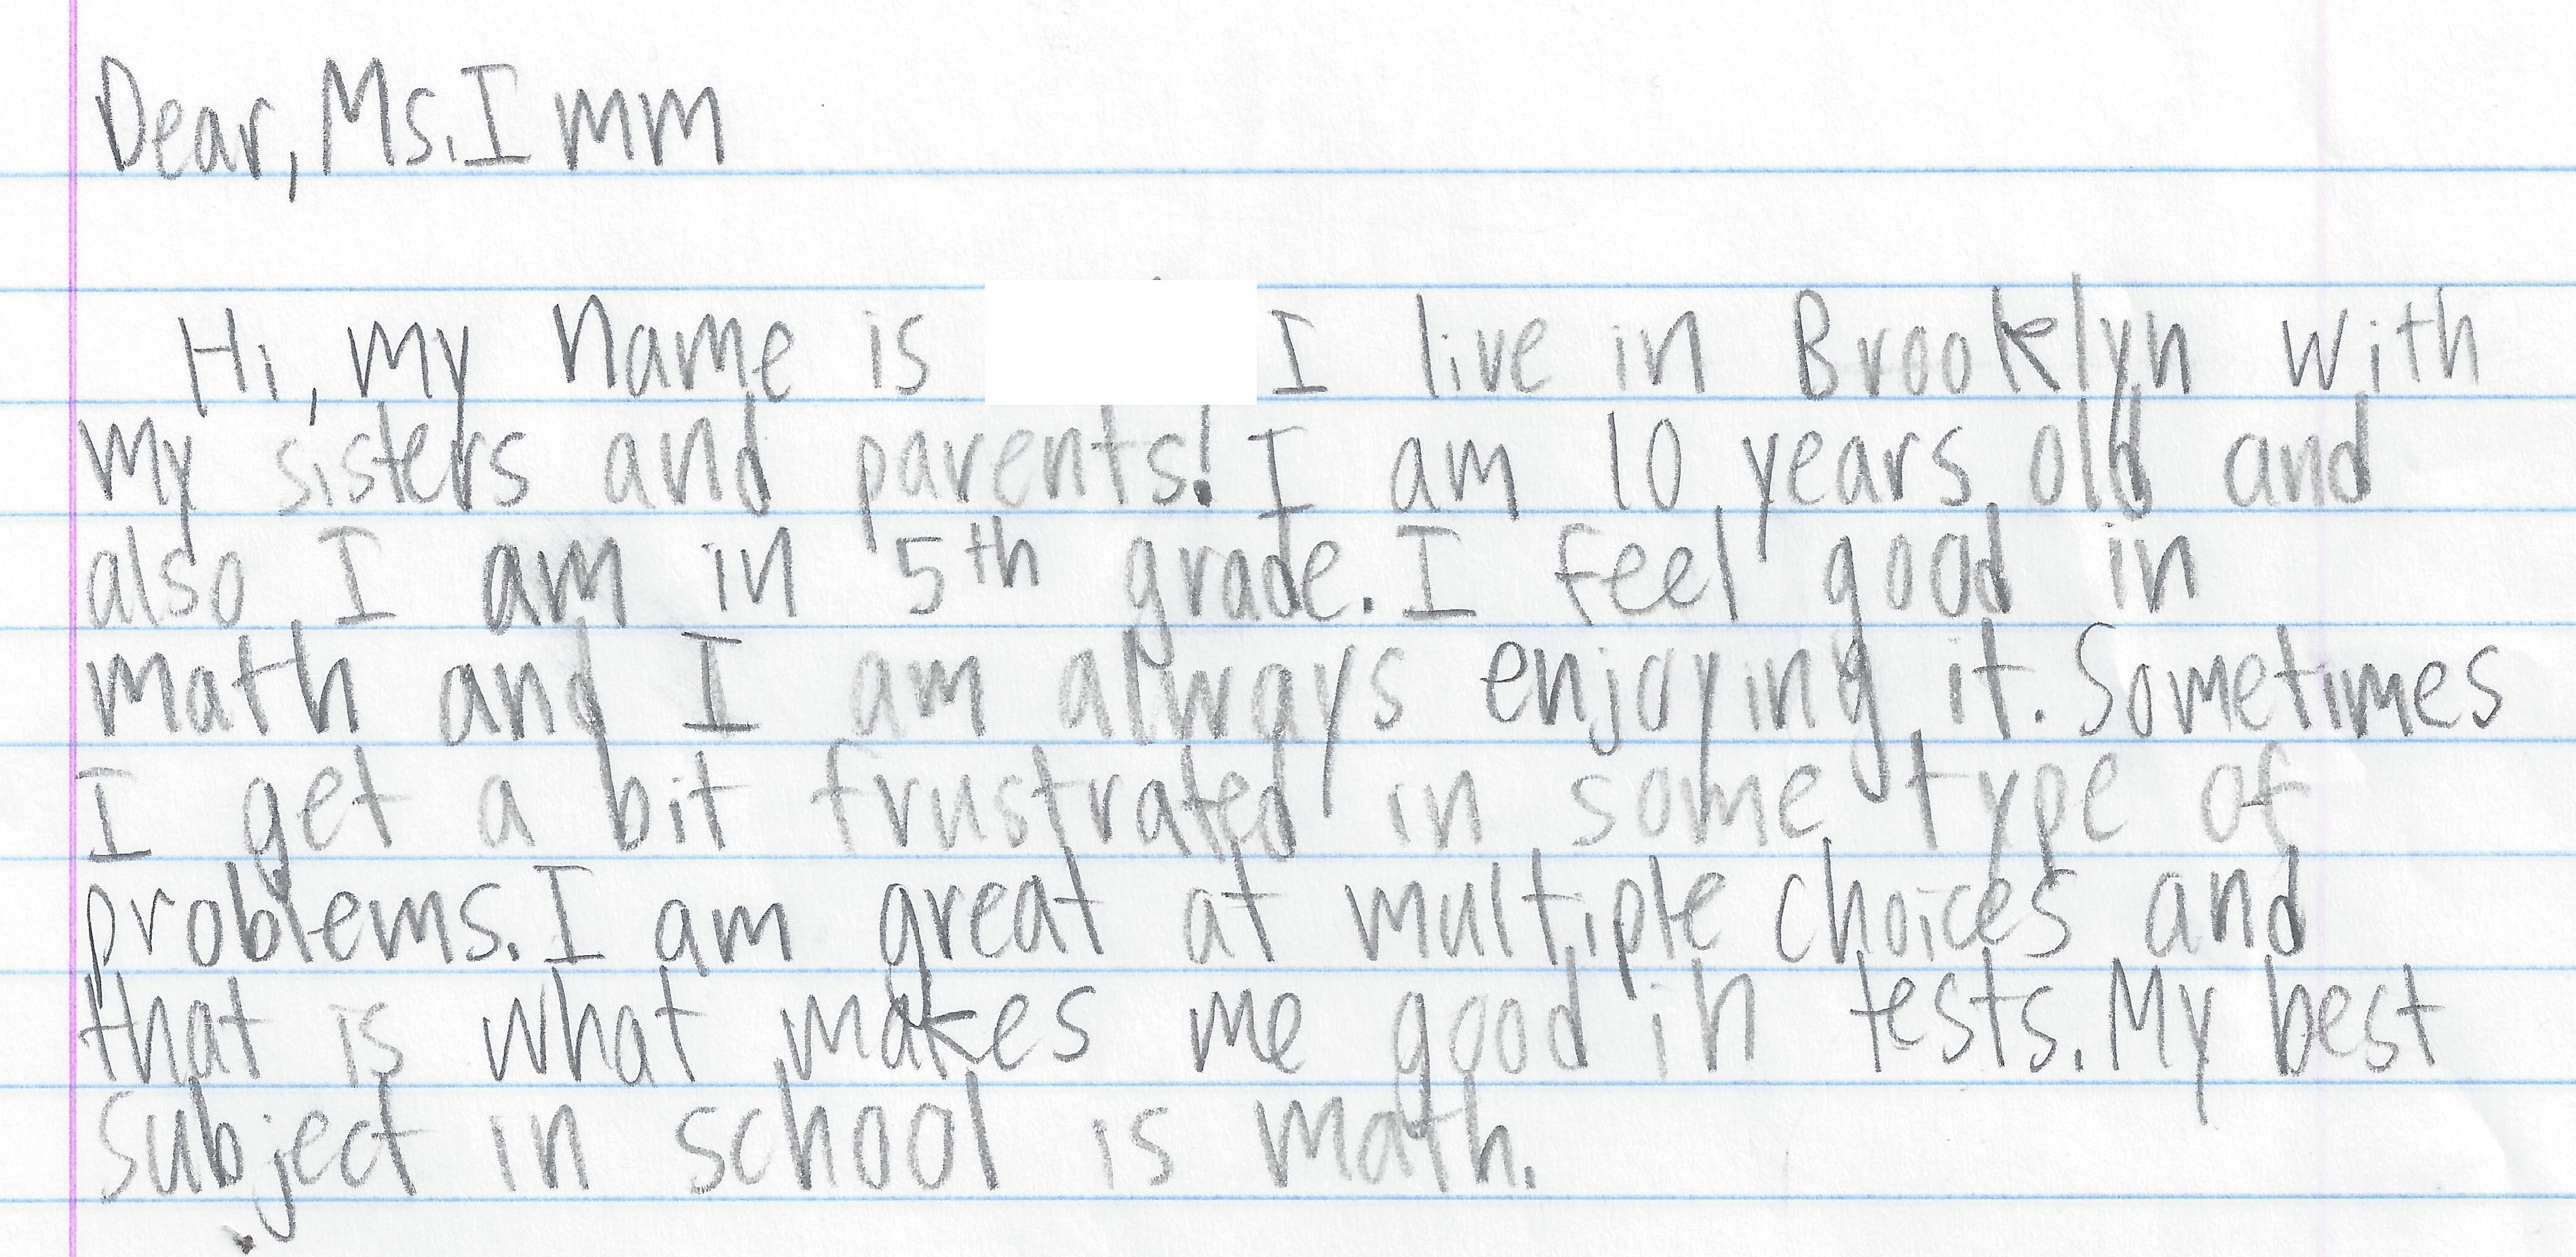 Dear, Ms. Imm
Hi, my name is I live in Brooklyn with
my sisters and parents! I am 10 years old and
also I am in 5th grade. I feel good in
math and I am always enjoying it. Sometimes
I get a bit frustrated in some type of
problems. I am great at multiple choices and
that is what makes me good in tests. My best
subject in school is math.